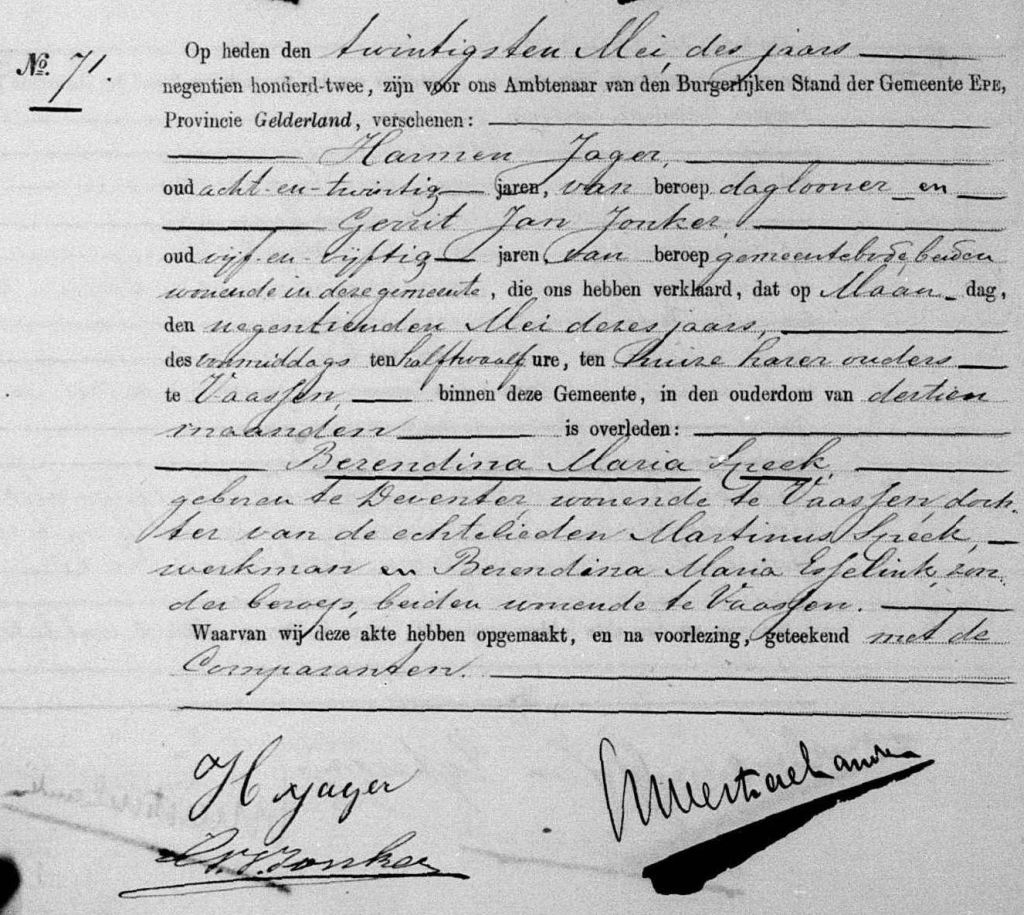 No. 71.
Op heden den twintigsten Mei, des jaars
negentien honderd-twee, zijn voor ons Ambtenaar van den Burgerlijken Stand der Gemeente EPE,
Provincie Gelderland, verschenen:
Harmen Jager,
oud acht-en-twintig jaren, van beroep daglooner en
Gerrit Jan Jonker,
oud vijf-en-vijftig jaren, van beroep gemeentebode, beiden
wonende in deze gemeente, die ons hebben verklaard, dat op Maandag,
den negentienden Mei dezes jaars,
des voormiddags ten half twaalf ure, ten huize harer ouders
te Vaassen, binnen deze Gemeente, in den ouderdom van dertien
maanden is overleden:
Berendina Maria Speek,
geboren te Deventer, wonende te Vaassen, doch-
ter van de echtelieden Martinus Speek,
werkman en Berendina Maria Esselink, zon-
der beroep, beiden wonende te Vaassen.
Waarvan wij deze akte hebben opgemaakt, en na voorlezing, geteekend met de
Comparanten.
H Jager
G.J. Jonker